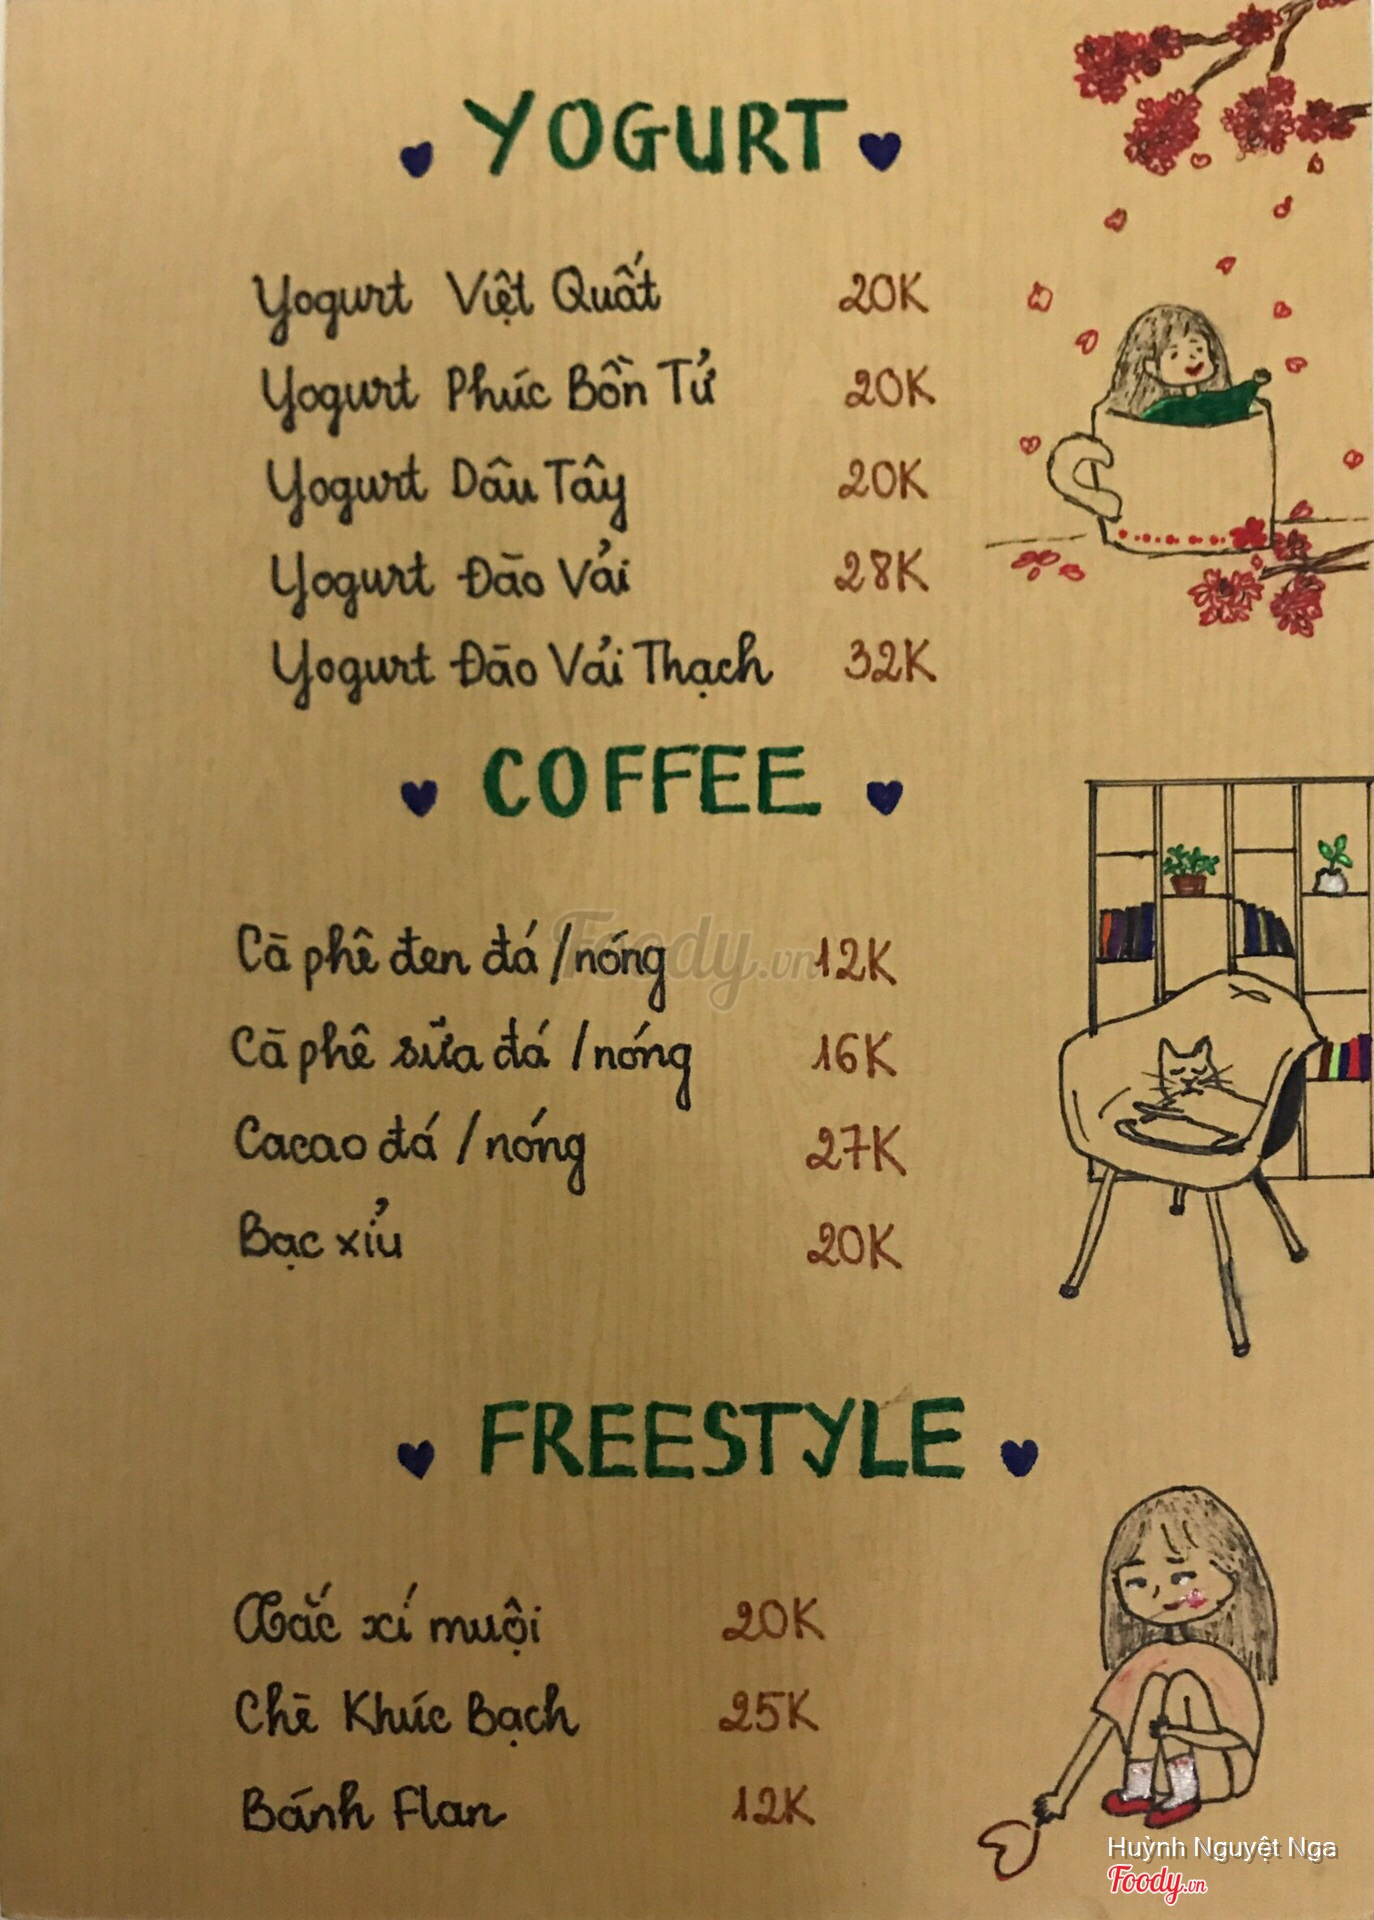 YOGURT
Yogurt Việt Quất 20K
Yogurt Phúc Bồn Tử 20K
Yogurt Dâu Tây 20K
Yogurt Đào Vải 28K
Yogurt Đào Vải Thạch 32K
COFFEE
Cà phê đen đá / nóng 12K
Cà phê sữa đá / nóng 16K
Cacao đá / nóng 27K
Bạc xỉu 20K
Foody.vn
FREESTYLE
Tắc xí muội 20K
Chè Khúc Bạch 25K
Bánh Flan 12K
Huỳnh Nguyệt Nga
Foody.vn